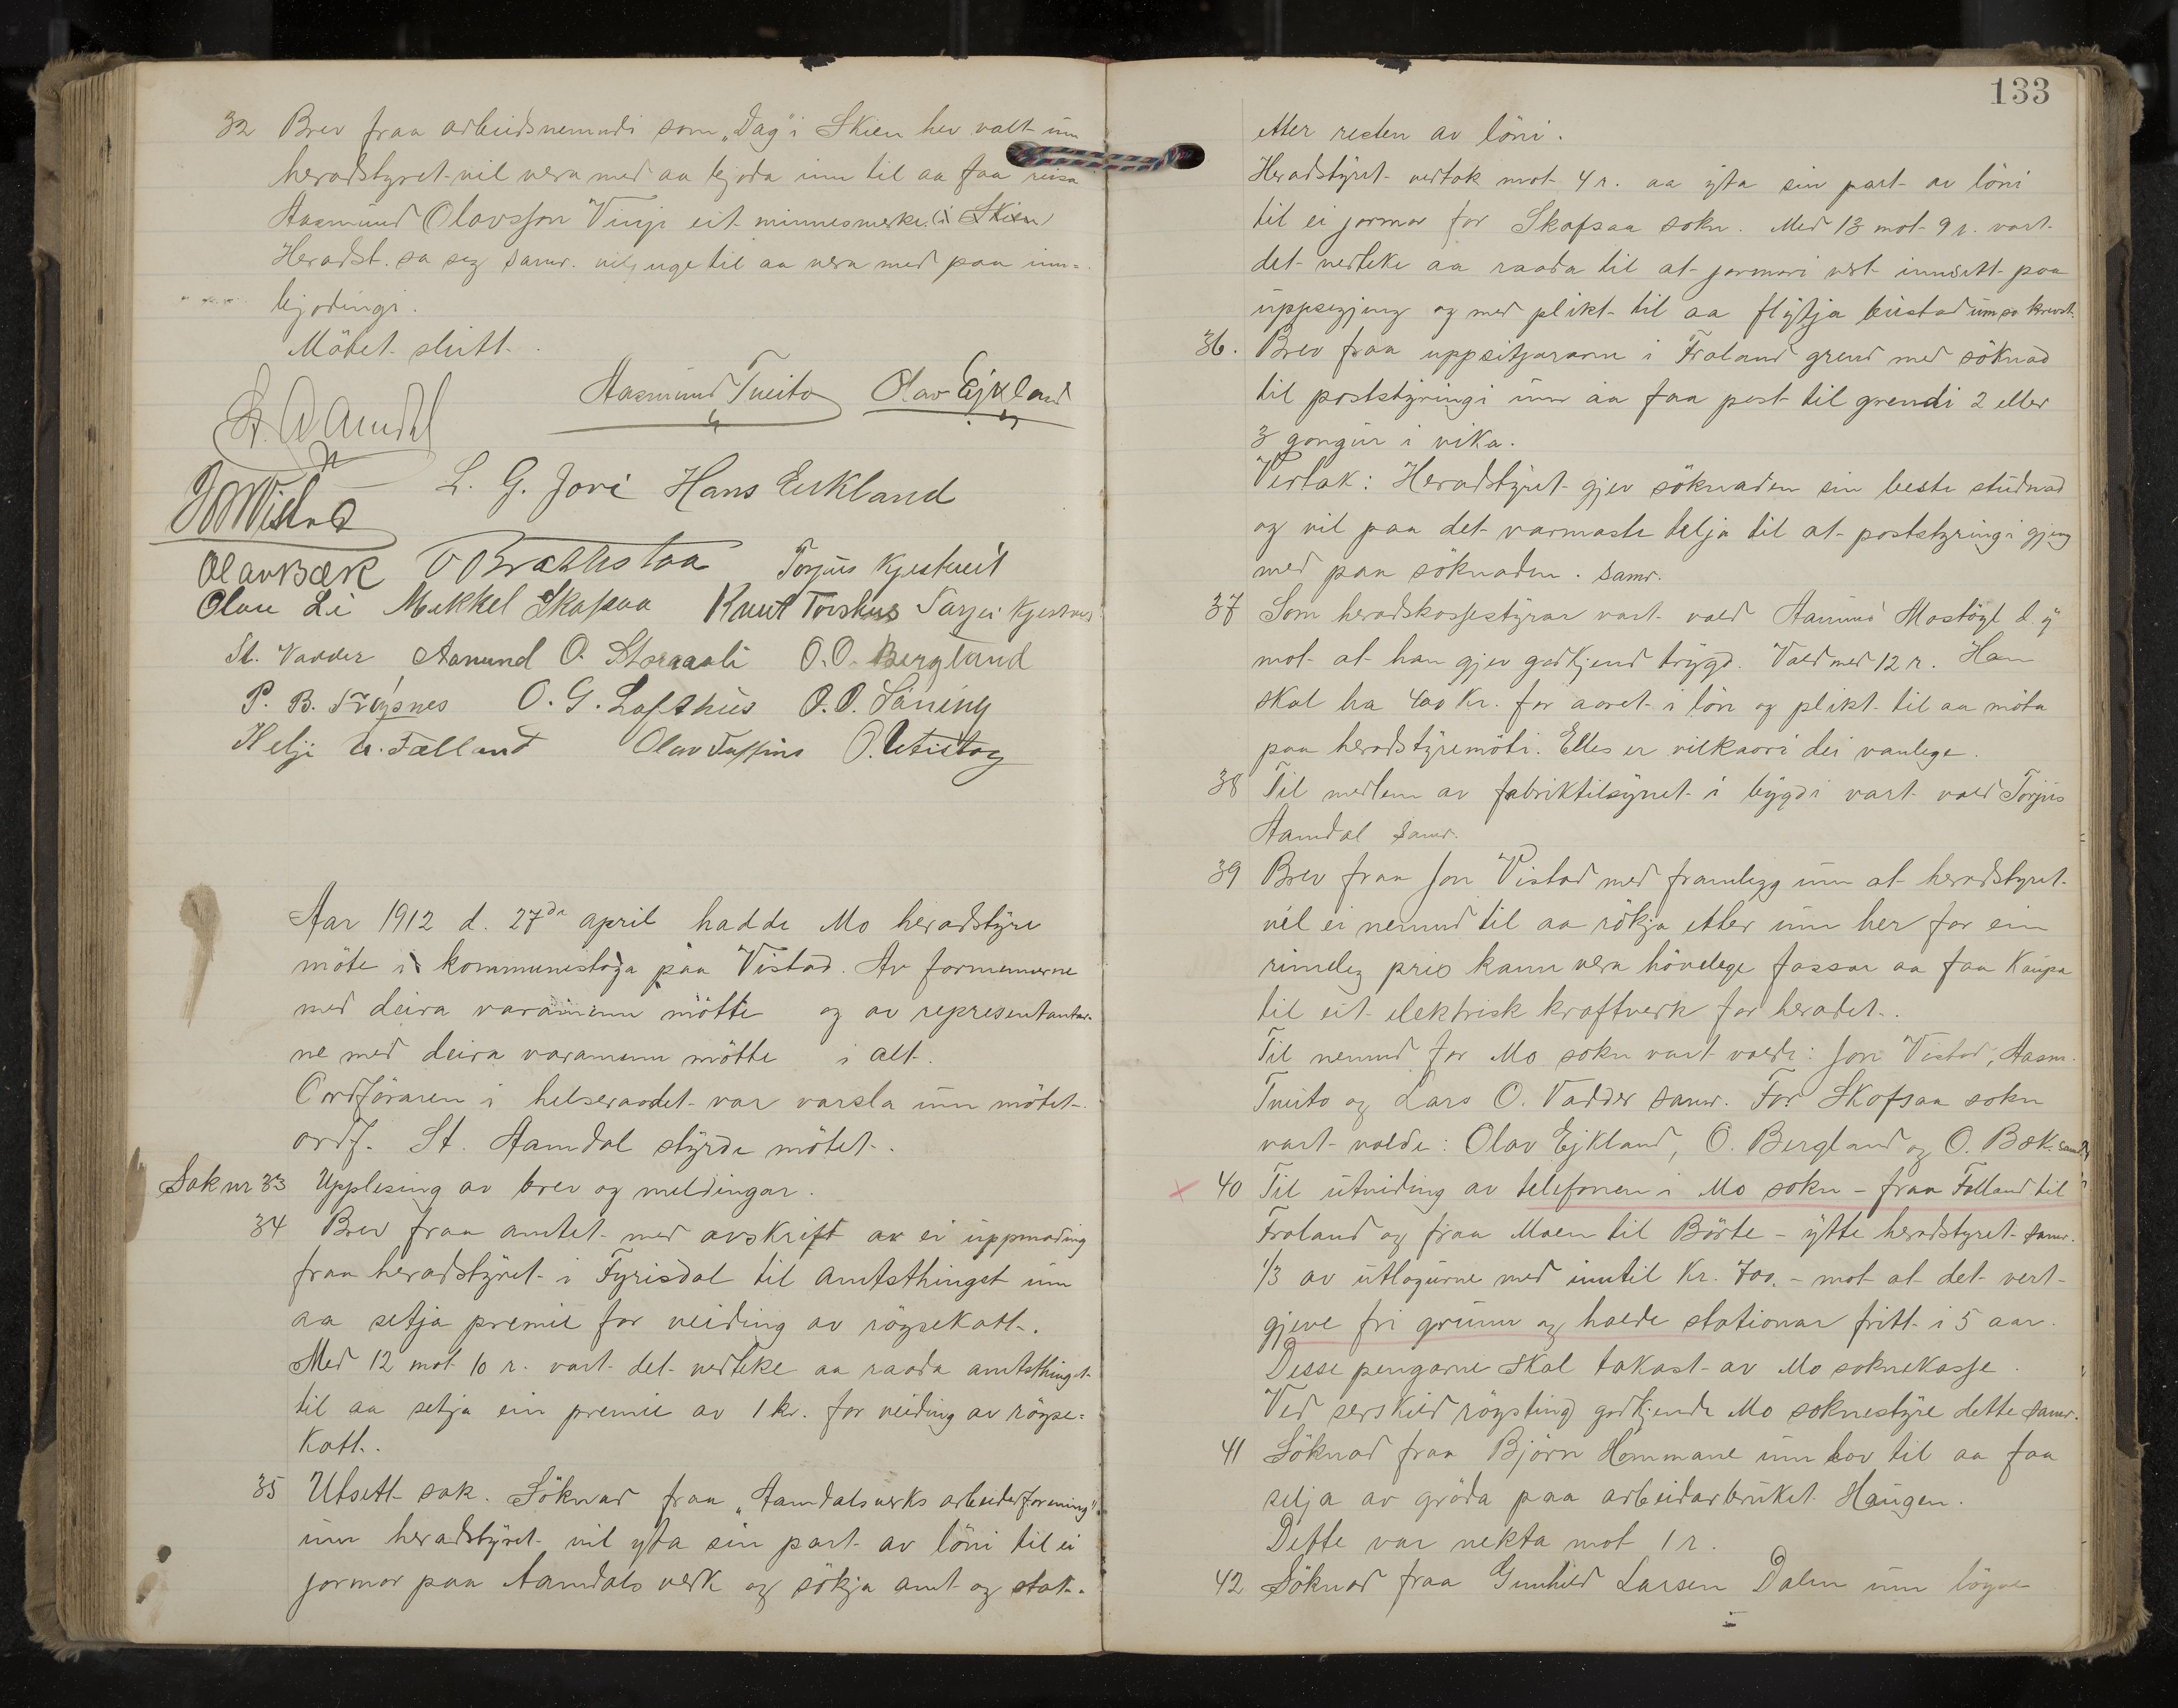 32 Brev fraa arbeidsnemndi som „Dag" i Skien hev valt um
heradstyret vil vera med aa bjoda inn til aa faa reisa
Aasmund Olavsson Vinje eit minnesmerke (i Skien)
Heradst. sa seg samr. viljuge til aa vera med paa inn=
bjodingi.
Mötet slutt.
St. Aamdal
Aasmund Tveito Olav Ejkland
J Vistad
L. G. Jore Hans Eikland
Olav Bæk O Brattestaa Torjus Kjestveit
Olav Li Mikkel Skafsaa Knut Torskus Tarjei Kjestveit
St. Vadder Aanund O. Storaali O.O. Bergland
P. B. Frøysnes O. G. Lofthus O.O.
Helje G. Fælland Olav O.
Aar 1912 d. 27de april hadde Mo heradstyre
möte i kommunestoga paa Vistad. Av formennerne
med deira varamenn mötte og av representantar-
ne med deira varamenn mötte i alt.
Ordföraren i helseraadet var varsla um mötet.
ordf. St. Aamdal styrde mötet.
Sak nr 33 Upplesing av brev og meldingar.
34 Brev fraa amtet med avskrift av ei uppmoding
fraa heradstyret i Fyrisdal til amtsthinget um
aa setja premie for veiding av röysekatt.
Med 12 mot 10 r. vart det vedteke aa raada amtsthinget
til aa setja ein premie av 1 kr. for veiding av röyse=
katt.
35 Utsett sak. Söknad fraa „Aamdalsverks arbeidarforening"
um heradstyret vil yta sin part av löni til ei
jormor paa Aamdals verk og sökja amt og stat.
133
etter resten av löni.
Heradstyret vedtok mot 4 r. aa yta sin part av löni
til ei jormor for Skafsaa sokn. Med 13 mot 9 r. vart
det vedteke aa raada til at jormori vert innsett paa
uppsegjing og med plikt til aa flytja bustad um so krevst.
36. Brev fraa uppsitjarann i Froland grend med söknad
til poststyringi um aa faa post til grendi 2 eller
3 gongur i vika.
Vertak: Heradstyret gjev söknaden sin beste studnad
og vil paa det varmaste telja til at poststyringi gjeng
med paa söknaden. Samr.
37 Som heradskassestyrar vart vald Aanund Mostögl d. y
mot at han gjev godkjend trygd. Vald med 12 r. Han
skal ha 400 kr. for aaret i lön og plikt til aa möta
paa heradstyremöti. Elles er vilkaari dei vanlege.
38 Til medlem av fabriktilsynet i bygdi vart vald Torjus
Aamdal samr.
39 Brev fraa Jon Vistad med framlegg um at heradstyret
vel ei nemnd til aa rökja etter um her for ein
rimeleg pris kann vera hövelege fossar aa faa kaupa
til eit elektrisk kraftverk for heradet.
Til nemnd for Mo sokn vart valde: Jon Vistad, Aasm.
Tveito og Lars O. Vadder samr. For Skafsaa sokn
vart valde: Olav Ejkland, O. Bergland og O. Bæk. samr.
40 Til utviding av telefonen i Mo sokn – fraa Felland til
Froland og fraa Moen til Börte – ytte heradstyret samr.
1/3 av utlogurne med inntil Kr. 700.– mot at det vert
gjeve fri grunn og halde stationar fritt i 5 aar.
Desse pengarne skal takast av Mo soknekasse.
Ved serskild röysting godkjende Mo soknestyre dette samr.
41 Söknad fraa Björn Hommane um lov til aa faa
selja av gröda paa arbeidarbruket Haugen.
Dette var nekta mot 1 r.
42 Söknad fraa Gunhild Larsen Dalen um löyve